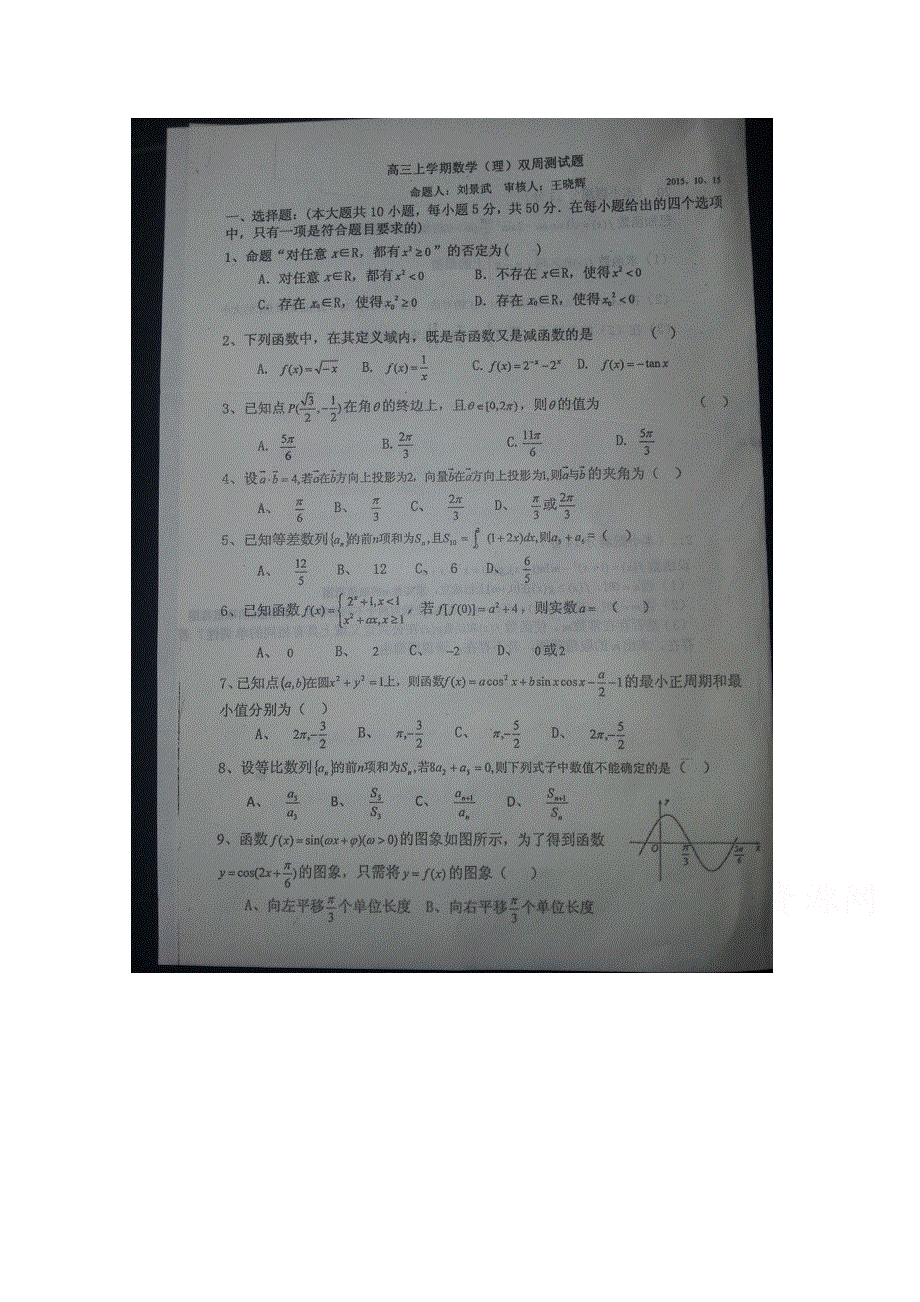 高三上学期数学（理）双周测试题
命题人：刘景武 审核人：王晓辉 2015．10．15
一、选择题：（本大题共10小题，每小题5分，共50分．在每小题给出的四个选项
中，只有一项是符合题目要求的）
1、命题“对任意 x∈R，都有 x²≥0”的否定为( )
A．对任意 x∈R，都有 x²<0 B．不存在 x∈R，使得 x²<0
C．存在 x₀∈R，使得 x₀²≥0 D．存在 x₀∈R，使得 x₀²<0
2、下列函数中，在其定义域内，既是奇函数又是减函数的是 ( )
A. f(x)=√-x B. f(x)=1/x C. f(x)=2⁻ˣ-2ˣ D. f(x)=-tan x
3、已知点 P(√3/2,-1/2)在角θ的终边上，且θ∈[0,2π)，则θ的值为 ( )
A. 5π/6 B. 2π/3 C. 11π/6 D. 5π/3
4、设a·b=4,若a在b方向上投影为2，向量b在a方向上投影为1,则a与b的夹角为( )
A、 π/6 B、 π/3 C、 2π/3 D、 π/3或2π/3
5、已知等差数列{aₙ}的前n项和为Sₙ,且S₁₀=∫(1+2x)dx,则a₅+a₆=( )
A、 12/5 B、 12 C、 6 D、 6/5
6、已知函数 f(x)={2ˣ+1,x<1 x²+ax,x≥1，若 f[f(0)]=a²+4，则实数a= ( )
A、 0 B、 2 C、 -2 D、 0或2
7、已知点(a,b)在圆x²+y²=1上，则函数f(x)=acos²x+bsin xcos x-a/2-1的最小正周期和最
小值分别为( )
A、 2π,-3/2 B、 π,-3/2 C、 π,-5/2 D、 2π,-5/2
8、设等比数列{aₙ}的前n项和为Sₙ,若8a₂+a₅=0,则下列式子中数值不能确定的是( )
A、 a₅/a₃ B、 S₅/S₃ C、 aₙ₊₁/aₙ D、 Sₙ₊₁/Sₙ
9、函数 f(x)=sin(ωx+φ)(ω>0)的图象如图所示，为了得到函数
y=cos(2x+π/6)的图象，只需将y=f(x)的图象( )
A、向左平移π/3个单位长度 B、向右平移π/3个单位长度
y
O π/3 5π/6 x
源网